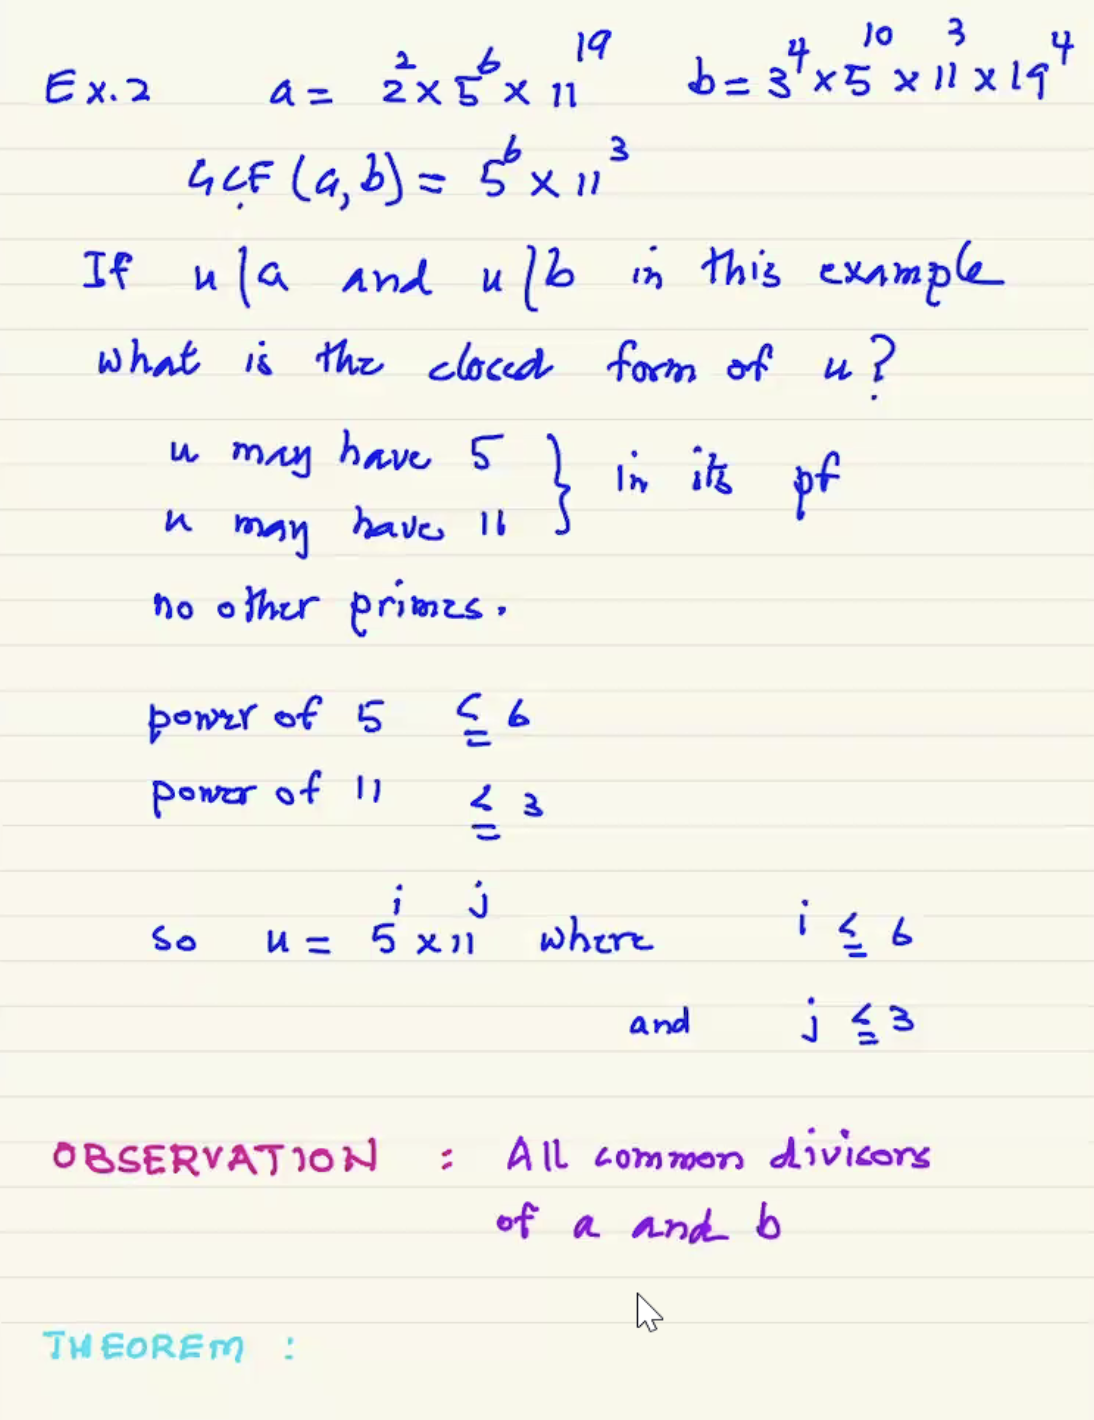 Ex.2 a = 2² × 5⁶ × 11¹⁹ b = 3⁴ × 5¹⁰ × 11³ × 19⁴
GCF (a, b) = 5⁶ × 11³
If u | a and u | b in this example
what is the closed form of u?
u may have 5 } in its pf
u may have 11
no other primes.
power of 5 ≤ 6
power of 11 ≤ 3
so u = 5ⁱ × 11ʲ where i ≤ 6
and j ≤ 3
OBSERVATION : All common divisors
of a and b
THEOREM :